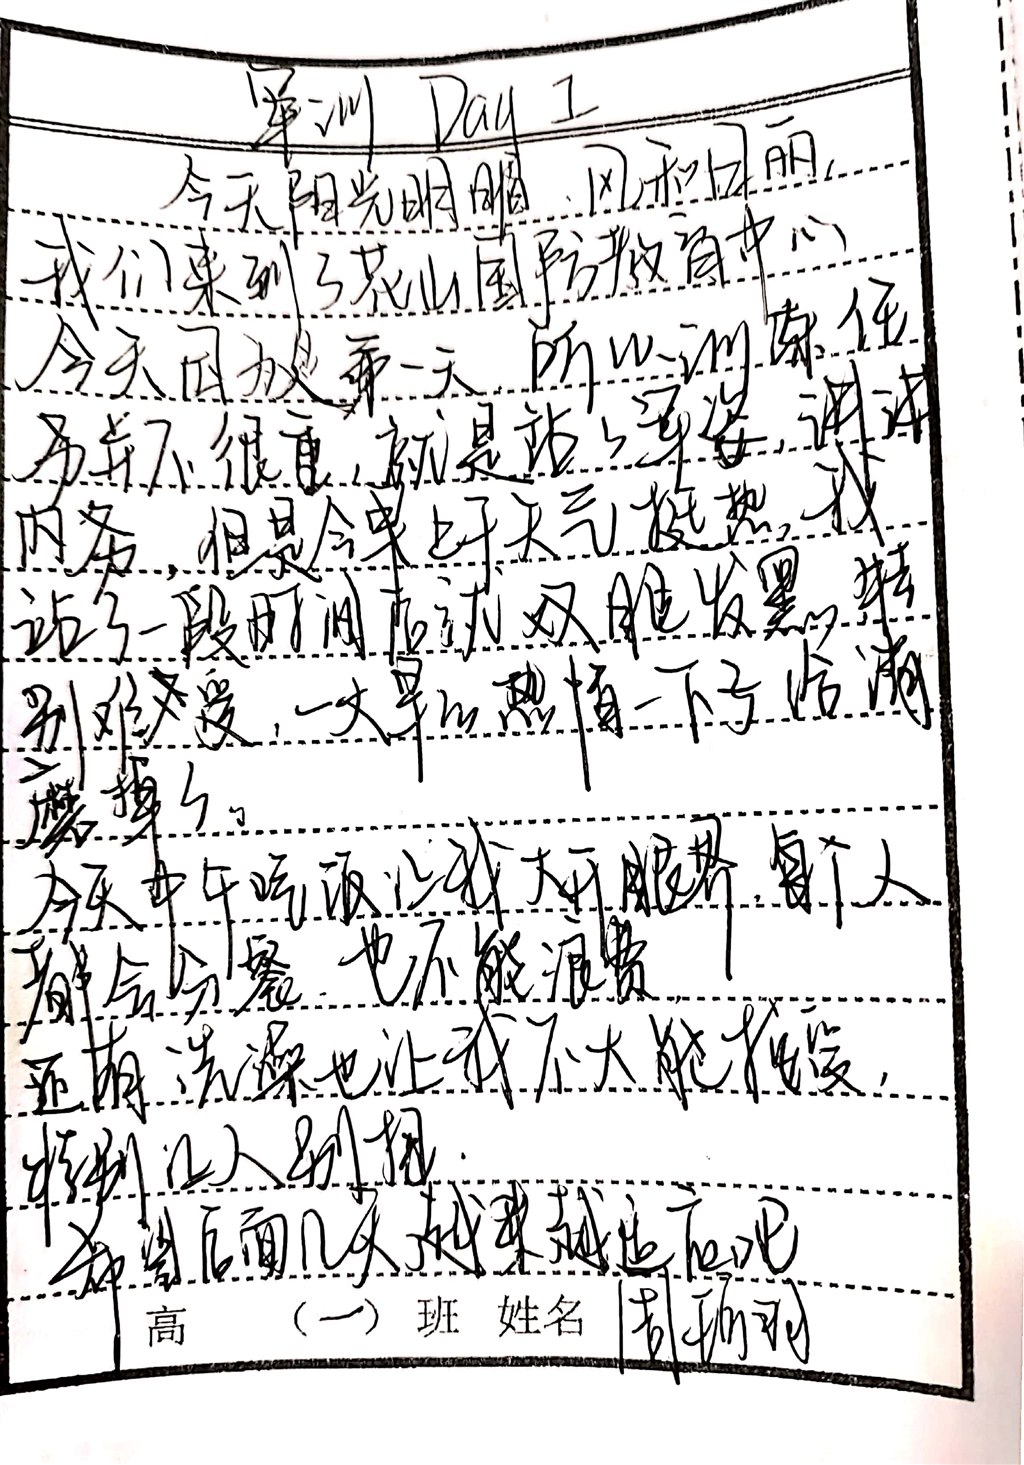 军训 Day 1
今天阳光明媚,风和日丽,
我们来到了花山国防教育中心
今天因为是第一天,所以训练任
务并不很重,就是站了军姿,讲讲
内务,但是今早上午天气挺热,我
站了一段时间后就双眼发黑,特
别难受,一大早的热情一下子给消
磨掉了。
今天中午吃饭让我大开眼界,每个人
都会分餐,也不能浪费
还有洗澡也让我不大能接受,
特别让人别扭.
希望后面几天越来越适应吧
高 (一)班 姓名 周